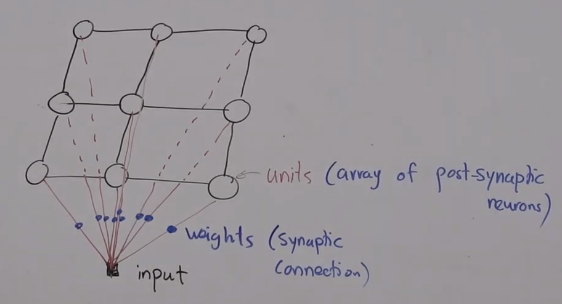 units (array of post-synaptic
neurons)
weights (synaptic
connection)
input